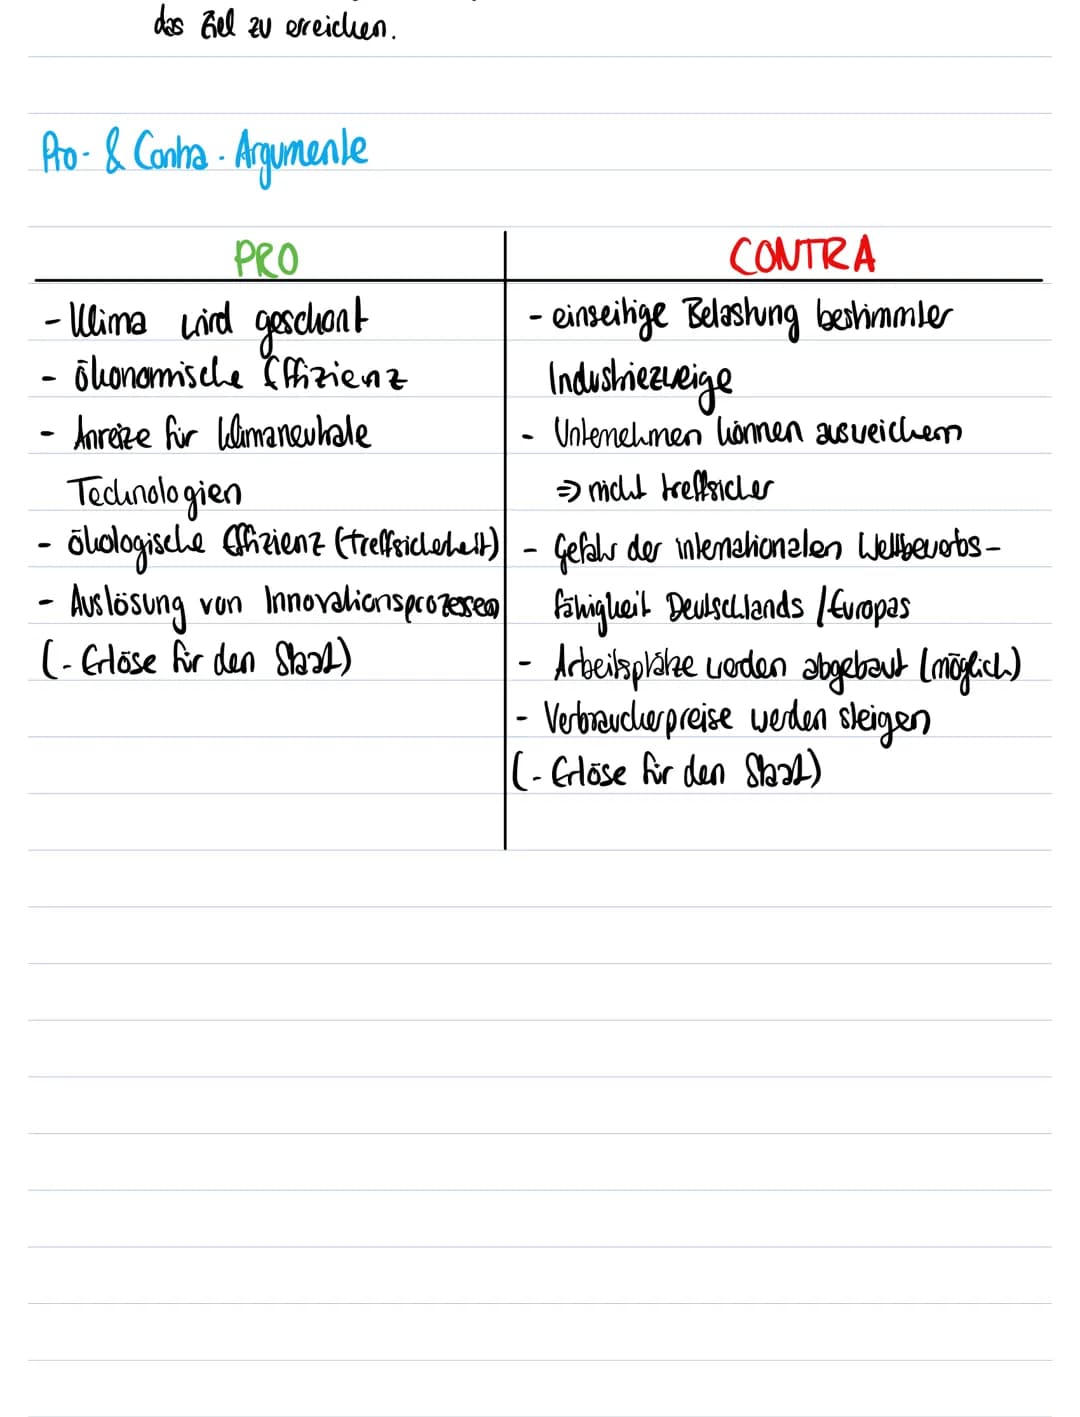 das Ziel zu erreichen.
Pro- & Contra-Argumente
PRO
- Klima wird geschont
- ökonomische Effizienz
- Anreize für klimaneutrale
Technologien
- ökologische Effizienz (Treffsicherheit)
- Auslösung von Innovationsprozessen
(- Erlöse für den Staat)
CONTRA
- einseitige Belastung bestimmter
Industriezweige
- Unternehmen können ausweichern
⇒ nicht treffsicher
- Gefahr der internationalen Wettbewerbs-
fähigkeit Deutschlands / Europas
- Arbeitsplätze werden abgebaut (möglich)
- Verbraucherpreise werden steigen
(- Erlöse für den Staat)